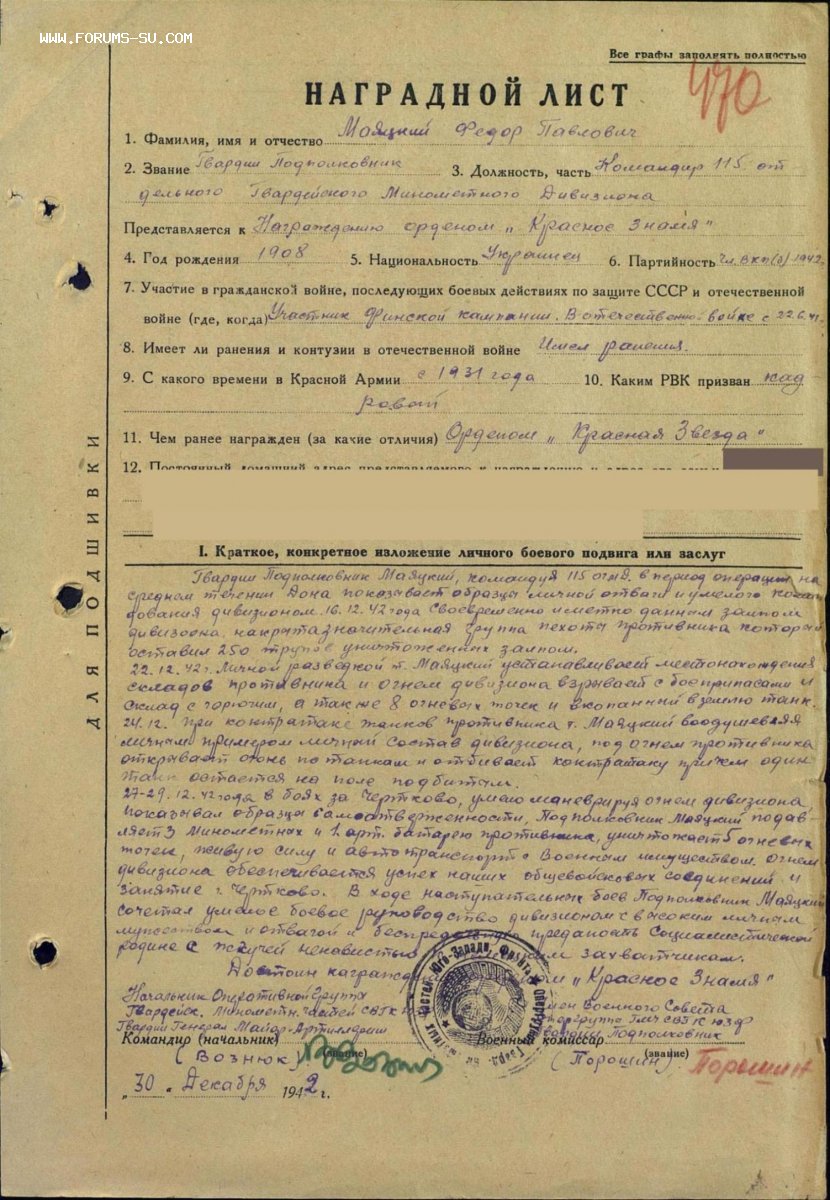 WWW.FORUMS-SU.COM
Все графы заполнять полностью
470
НАГРАДНОЙ ЛИСТ
1. Фамилия, имя и отчество Маяцкий Федор Павлович
2. Звание Гвардии Подполковник 3. Должность, часть Командир 115 от
дельного Гвардейского Минометного Дивизиона
Представляется к Награждению орденом „Красное Знамя"
4. Год рождения 1908 5. Национальность Украинец 6. Партийность Чл. ВКП(б) 1942г
7. Участие в гражданской войне, последующих боевых действиях по защите СССР и отечественной
войне (где, когда) Участник Финской кампании. В отечествен. войне с 22.6.41
8. Имеет ли ранения и контузии в отечественной войне Имел ранения.
9. С какого времени в Красной Армии с 1931 года 10. Каким РВК призван кад
ровый
11. Чем ранее награжден (за какие отличия) Орденом „Красная Звезда"
12. Постоянный домашний адрес представляемого к награждению и адрес его семьи
ДЛЯ ПОДШИВКИ
I. Краткое, конкретное изложение личного боевого подвига или заслуг
Гвардии Подполковник Маяцкий, командуя 115 огмд. в период операции на
среднем течении Дона показывает образцы личной отваги и умелого коман
дования дивизионом. 16.12.42 года своевременно и метко данным залпом
дивизиона, накрыта значительная группа пехоты противника который
оставил 250 трупов уничтоженных залпом.
22.12.42г. Личной разведкой т. Маяцкий устанавливает местонахождения
складов противника и огнем дивизиона взрывает с боеприпасами и
склад с горючим, а также 8 огневых точек и вкопанный в землю танк.
24.12. при контратаке танков противника т. Маяцкий воодушевляя
личным примером личный состав дивизиона, под огнем противника
открывает огонь по танкам и отбивает контратаку причем один
танк остается на поле подбитым.
27-29.12.42 года в боях за Чертково, умело маневрируя огнем дивизиона,
показывал образцы самоотверженности, Подполковник Маяцкий подав-
ляет 3 Минометных и 1. арт. батарею противника, уничтожает 5 огневых
точек, живую силу и автотранспорт с военным имуществом. Огнем
дивизиона обеспечивается успех наших общевойсковых соединений и
занятие г. Чертково. В ходе наступательных боев Подполковник Маяцкий
сочетал умелое боевое руководство дивизионом с высоким личным
мужеством и отвагой и беспредельную преданость Социалистической
родине с жгучей ненавистью захватчикам.
Достоин награждения „Красное Знамя"
Начальник Оперативной Группы Член Военного Совета
Гвардейск. Минометн. частей СВГК опергруппы ГМЧ СВГК ЮЗФ
Гвардии Генерал Майор Артиллерии Гвардии Подполковник
Командир (начальник) Военный комиссар
(Вознюк) (звание) (Порошин) (звание) Порошин
Юго-Запад. Фронта
„30" Декабря 1942 г.